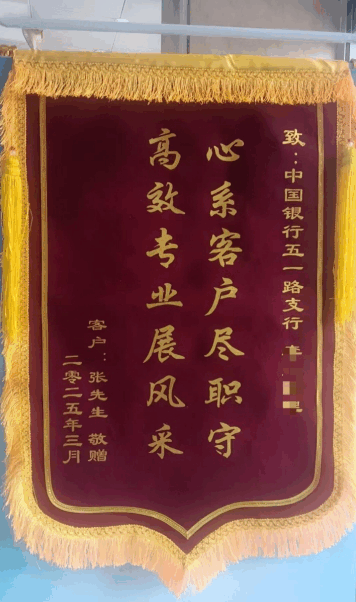 致：中国银行五一路支行
心系客户尽职守
高效专业展风采
客户：张先生 敬赠
二零二五年三月